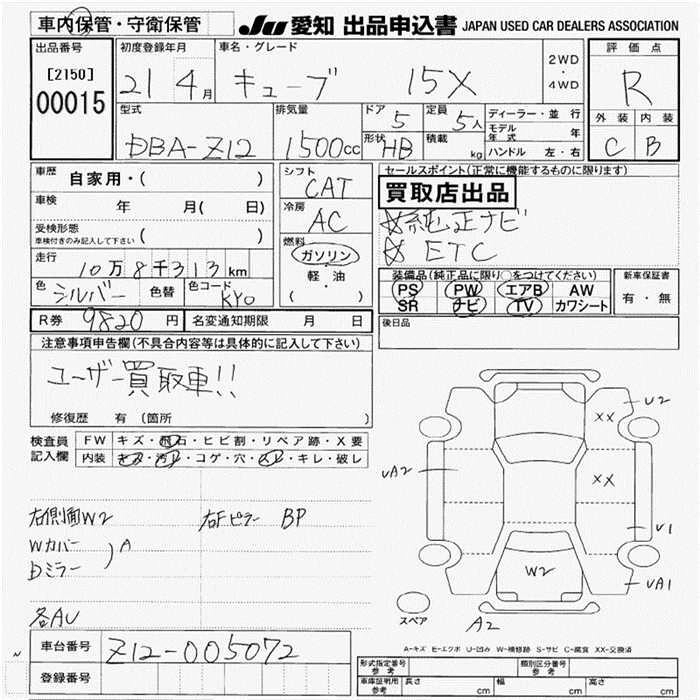 車内保管・守衛保管
JU 愛知 出品申込書 JAPAN USED CAR DEALERS ASSOCIATION
出品番号
[2150]
00015
初度登録年月
21 4月
車名・グレード
キューブ 15X
2WD
・
4WD
評価点
R
外装 内装
C B
型式
DBA-Z12
排気量
1500cc
ドア 5
定員 5人
形状 HB
積載 kg
ディーラー・並行
モデル年式 年
ハンドル 左・右
車歴 自家用・( )
車検 年 月( 日)
受検形態
車検付きのみ記入して下さい ( )
走行
10万8千313km
色 シルバー 色替
色コード KY0
シフト
CAT
冷房
AC
燃料
ガソリン
・
軽・油
( )
セールスポイント(正常に機能するものに限ります)
買取店出品
☆純正ナビ
☆ETC
装備品(純正品に限り○をつけてください)
PS PW エアB AW
SR ナビ TV カワシート
新車保証書
有・無
後日品
R券 9820円
名変通知期限 月 日
注意事項申告欄(不具合内容等は具体的に記入して下さい)
ユーザー買取車!!
修復歴 有 (箇所 )
検査員記入欄
FW キズ・飛石・ヒビ割・リペア跡・X要
内装 キズ・汚れ・コゲ・穴・スレ・キレ・破レ
右側面W2 右Fピラー BP
Wカバー
Dミラー ) A
各AU
U2
XX
UA2
XX
U1
W2
UA1
スペア
A2
A-キズ E-エクボ U-凹み W-補修跡 S-サビ C-腐食 XX-交換済
車台番号 Z12-005072
登録番号
形式指定番号 参考
類別区分番号 参考
車庫証明用 参考 長さ cm 幅 cm 高さ cm